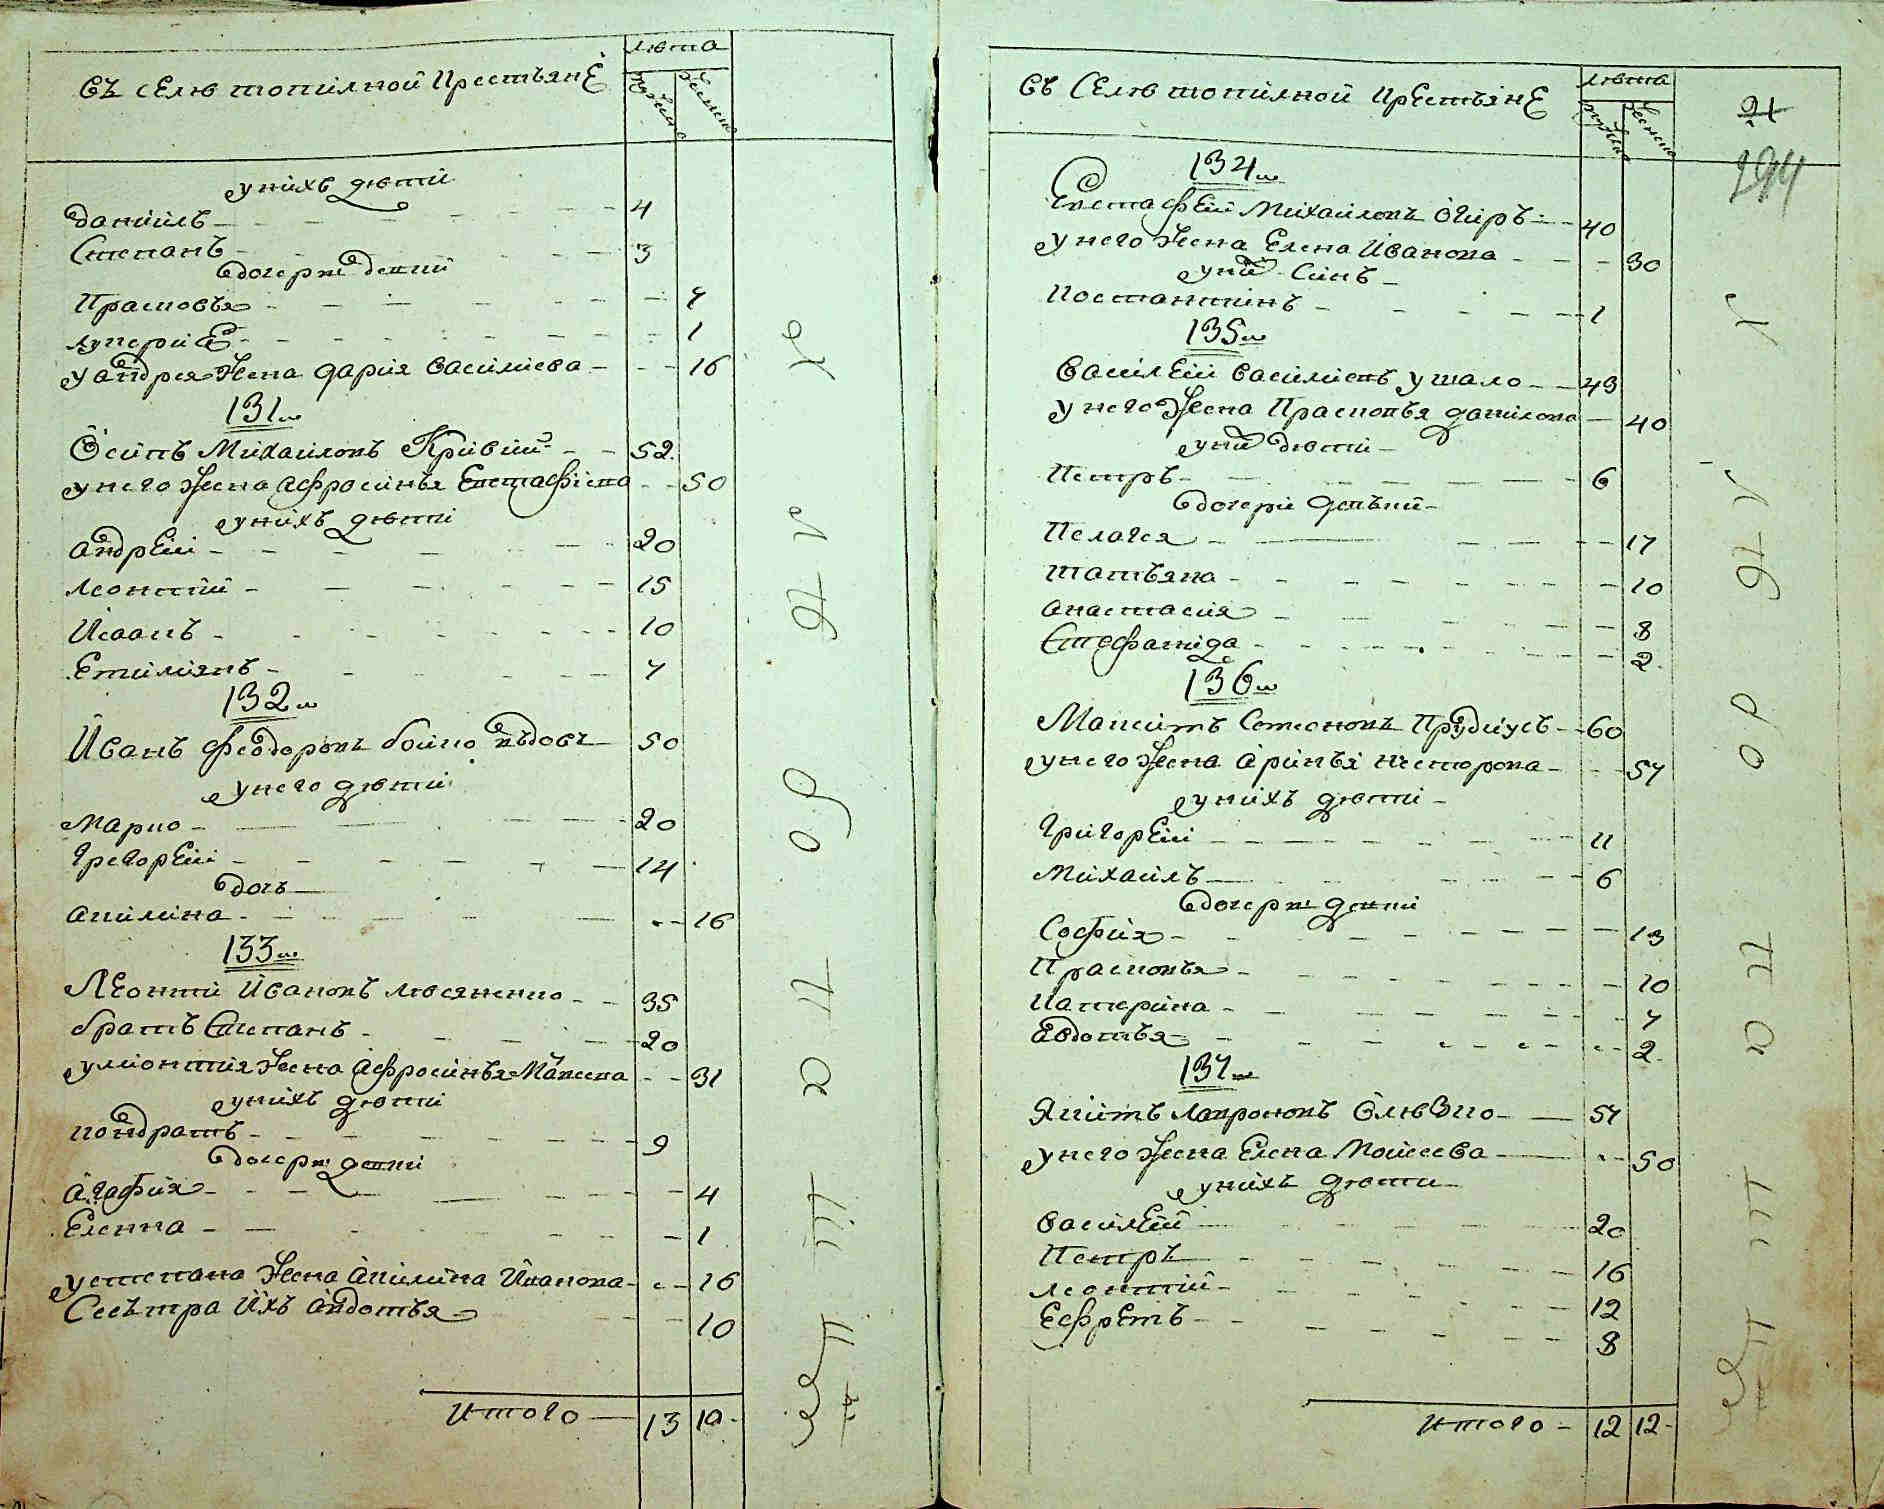 Въ селѣ топилной крестьянѣ
лѣта
мужеско
женско
у нихъ дѣти
Даниилъ 4
Степанъ 3
дочери дѣти
Прасковья 7
Лукерия 1
у андрея жена дария василиева 16
131ш
Осипъ Михаиловъ Кривий 52
у него жена афросинья Евстафиева 50
у нихъ дѣти
андрей 20
леонтий 15
Исаакъ 10
Емилиянъ 7
132ш
Иванъ феодоровъ бойко въдовъ 50
у него дѣти
марко 20
Григорей 14
дочь
акилина 16
133ш
Леонтий Ивановъ лисяненко 35
братъ Степанъ 20
у лионтия жена афросинья Макеева 31
у нихъ дѣти
кондратъ 9
дочери дѣти
Агафия 4
Еленна 1
у степана жена акилина Иванова 16
Сесътра ихъ авдотья 10
Итого 13 10
Въ Селѣ топилной крестьянѣ
лѣта
мужеско
женско
21
294
134ш
Евстафей Михаиловъ Огиръ 40
у него жена Елена Иванова 30
у ний синъ
Костантинъ 1
135ш
Василей василиевъ ушало 43
у него жена Прасковья данилова 40
у ний дѣти
Петръ 6
дочери дѣвъки
Пелагея 17
татьяна 10
анастасия 8
Стефанида 2
136ш
Максимъ Семеновъ Прудиусъ 60
у него жена аринья несторова 57
у нихъ дѣти
Григорей 11
Михаилъ 6
дочери дѣвки
София 13
Прасковья 10
Катерина 7
авдотья 2
137ш
Якимъ лавроновъ 57
у него жена Елена Моисеева 50
у нихъ дѣти
василей 20
Петръ 16
леонтий 12
Ефремъ 8
Итого 12 12